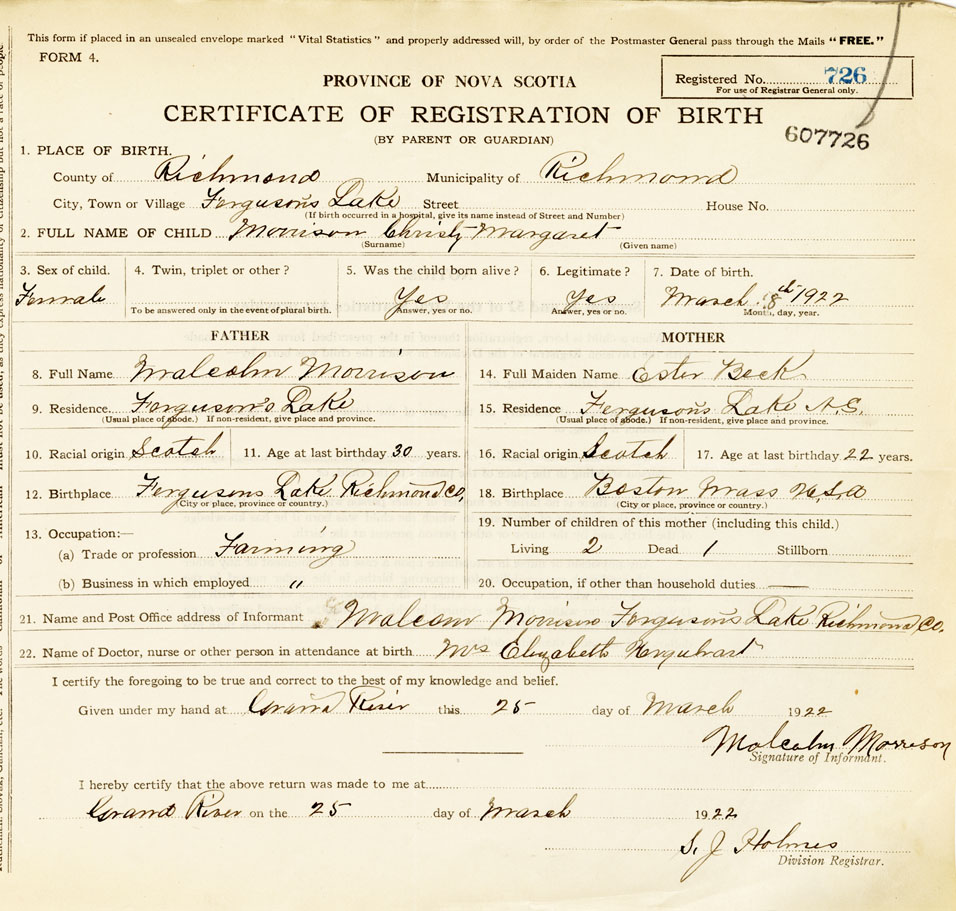 This form if placed in an unsealed envelope marked "Vital Statistics" and properly addressed will, by order of the Postmaster General pass through the Mails "FREE."
FORM 4.
Registered No. 726
For use of Registrar General only.
PROVINCE OF NOVA SCOTIA
CERTIFICATE OF REGISTRATION OF BIRTH
607726
(BY PARENT OR GUARDIAN)
1. PLACE OF BIRTH.
County of Richmond Municipality of Richmond
City, Town or Village Fergusons Lake Street House No.
(If birth occurred in a hospital, give its name instead of Street and Number)
2. FULL NAME OF CHILD Morrison Christy Margaret
(Surname) (Given name)
3. Sex of child. 4. Twin, triplet or other? 5. Was the child born alive? 6. Legitimate? 7. Date of birth.
Female Yes Yes March 8th 1922
To be answered only in the event of plural birth. Answer, yes or no. Answer, yes or no. Month, day, year.
FATHER MOTHER
8. Full Name Malcolm Morrison 14. Full Maiden Name Ester Beck
9. Residence Ferguson's Lake 15. Residence Fergusons Lake N.S.
(Usual place of abode.) If non-resident, give place and province. (Usual place of abode.) If non-resident, give place and province.
10. Racial origin Scotch 11. Age at last birthday 30 years. 16. Racial origin Scotch 17. Age at last birthday 22 years.
12. Birthplace Fergusons Lake Richmond Co. 18. Birthplace Boston Mass U.S.A
(City or place, province or country.) (City or place, province or country.)
13. Occupation:— 19. Number of children of this mother (including this child.)
(a) Trade or profession Farming Living 2 Dead 1 Stillborn
(b) Business in which employed " 20. Occupation, if other than household duties —
21. Name and Post Office address of Informant Malcom Morrison Fergusons Lake Richmond Co.
22. Name of Doctor, nurse or other person in attendance at birth Mrs Elizabeth Urquhart
I certify the foregoing to be true and correct to the best of my knowledge and belief.
Given under my hand at Grand River this 25 day of March 1922
Malcolm Morrison
Signature of Informant.
I hereby certify that the above return was made to me at
Grand River on the 25 day of March 1922
S. J Holmes
Division Registrar.